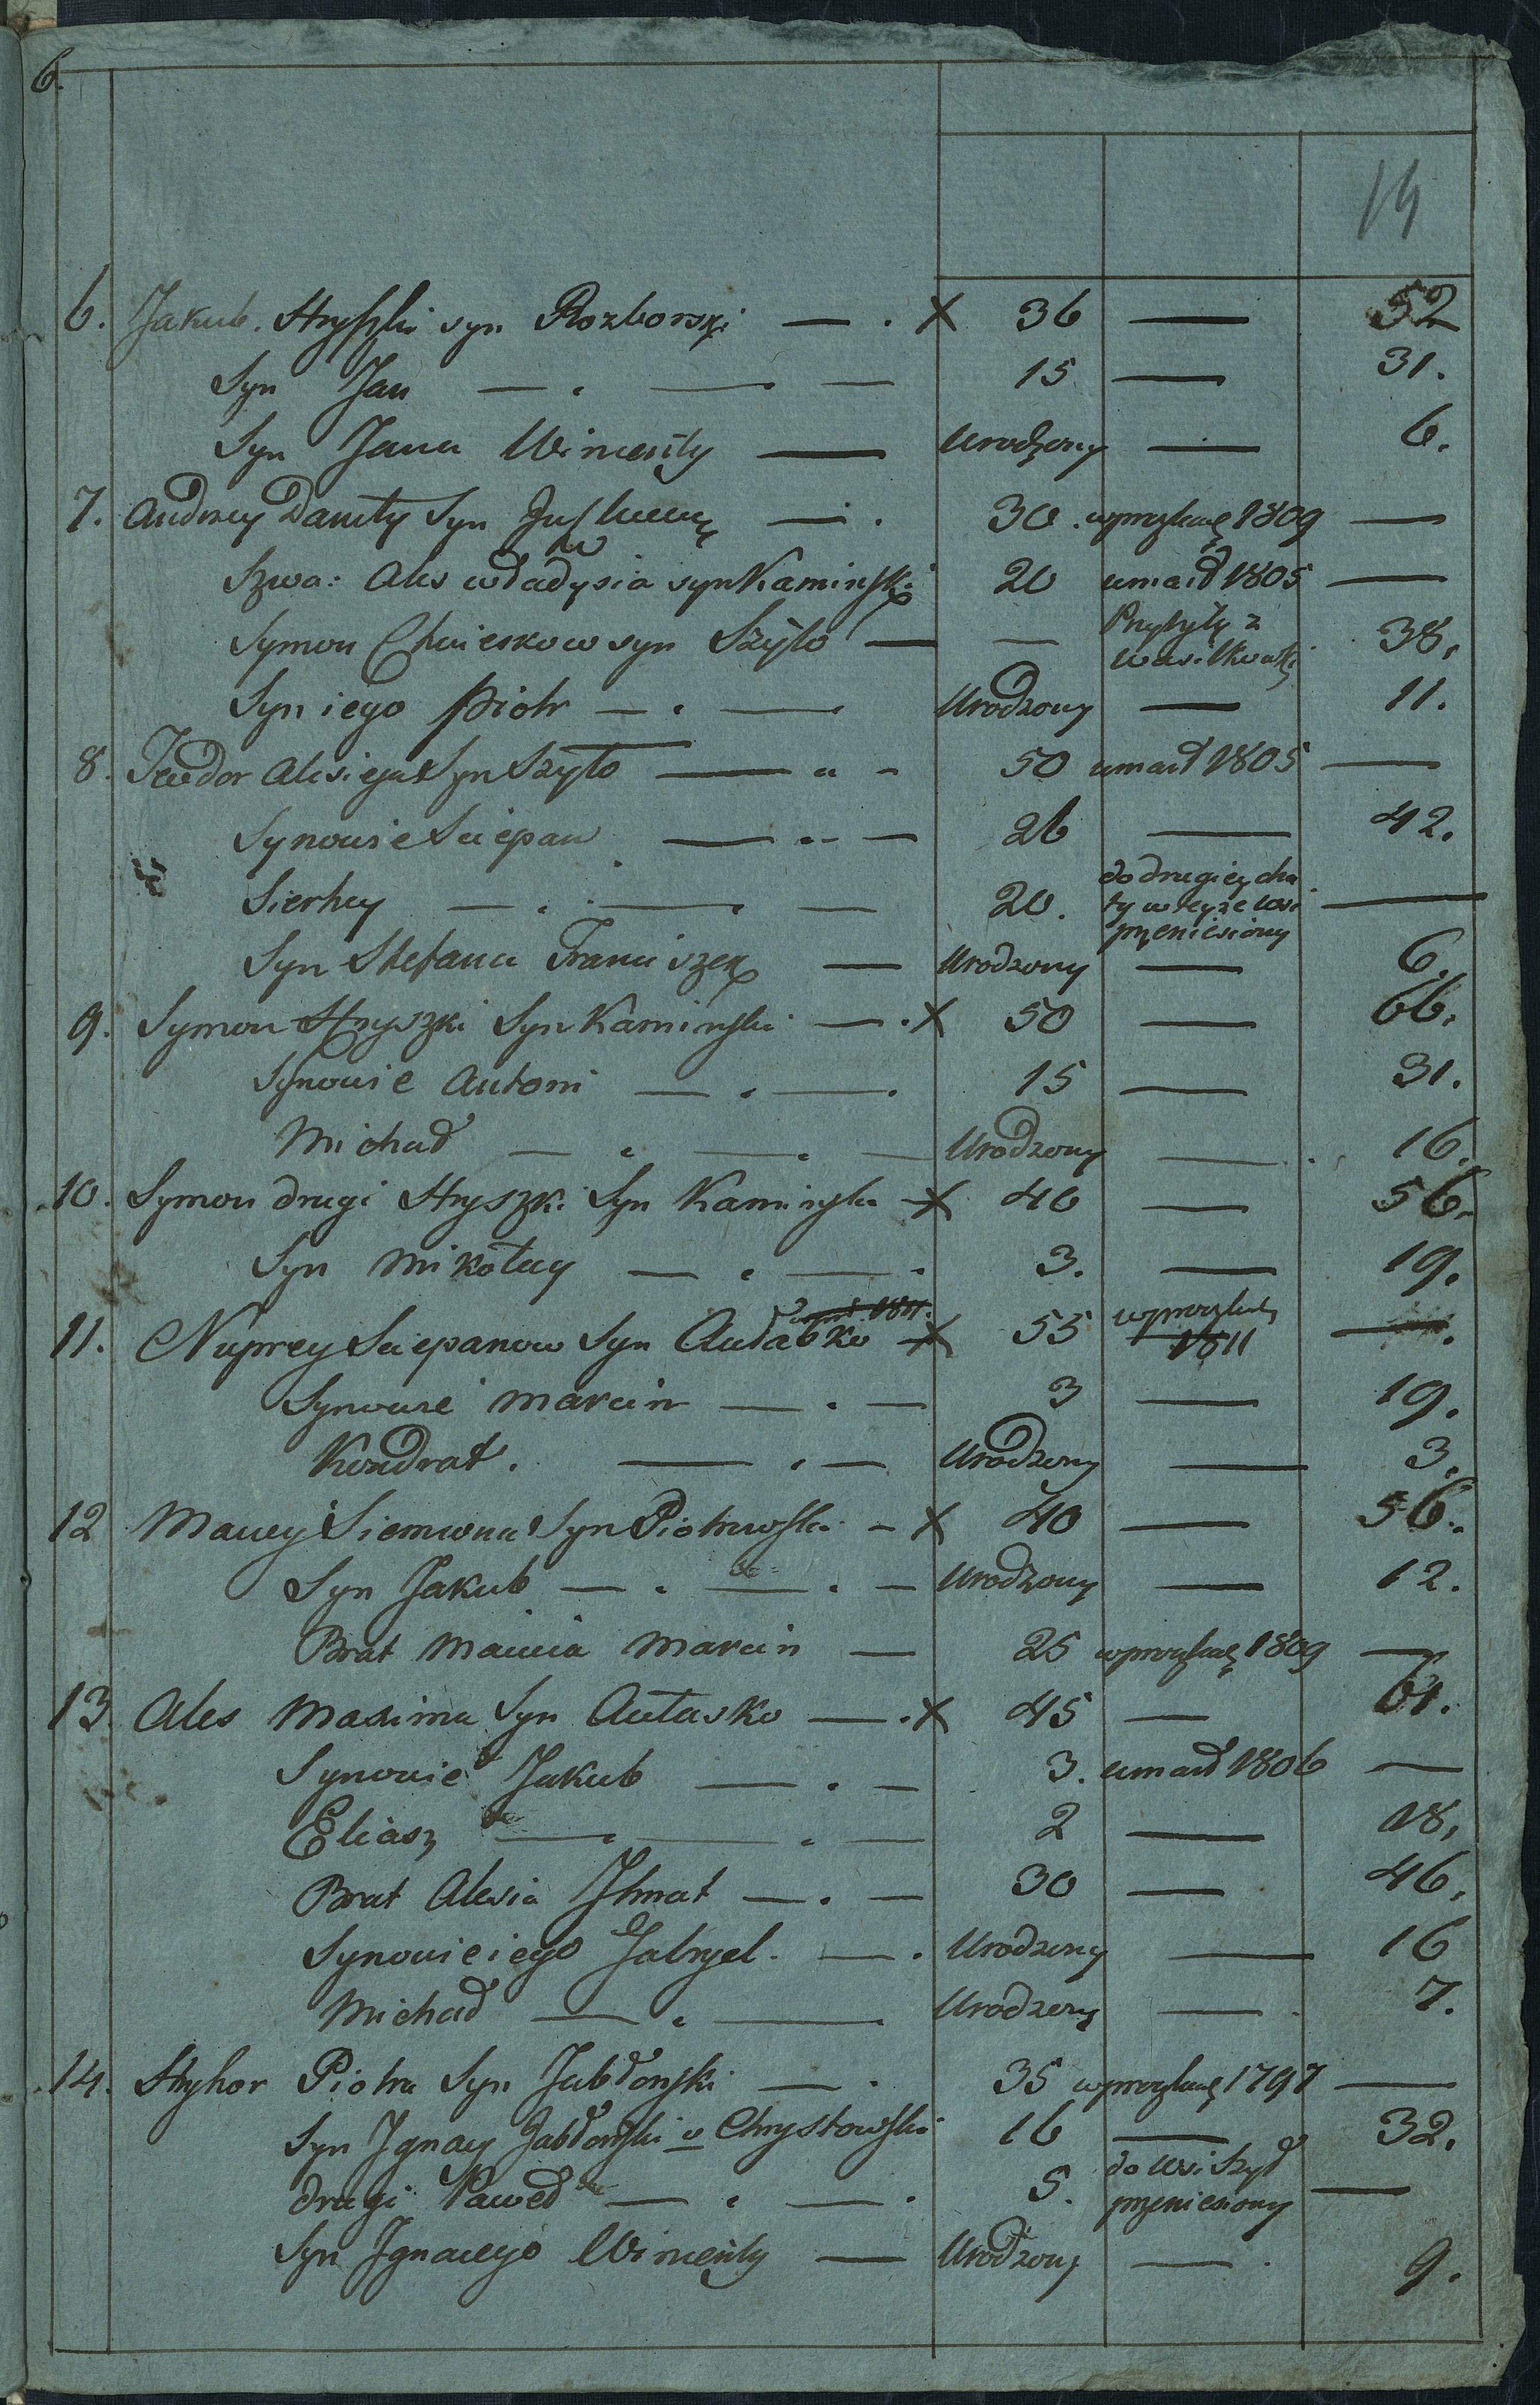 6.
14
6. Jakub Hryszki syn Rozborski — . X 36 — 52
Syn Jan — . — — 15 — 31.
Syn Jana Wincenty — Urodzony — 6.
7. Andrzey Daniły Syn — . 30 . wprzysz­łę 1809 —
Szwa: Ales Władysia syn Kaminski 20 umarł 1805 —
Symon syn Szyło — — Przybyły z 38.
Syn iego Piotr — . — Urodzony — 11.
8. Teodor Alesieja Syn Szyło — " - 50 umarł 1805 —
Synowie Sciepan — .. — 26 — 42.
do drugiey cha
Sierhey — . — . — 20. ty w teyże wsi —
przeniesiony
Syn Stefana Franciszek — Urodzony — 6.
9. Symon Hryszki Syn Kaminski — . X 50 — 66.
Synowie Antoni — . — . 15 — 31.
Michał — . — . — Urodzony — 16.
10. Symon drugi Hryszki Syn Kaminski X 40 — 56.
Syn Mikołay — . — . 3. — 19.
1811.
11. Nuprey Sciepanow Syn Autasko X 55 1811 — .
Synowie Marcin — . — 3 — 19.
Kondrat. — . — Urodzony — 3.
12 Maciey Siemiona Syn Piotrowski - X 40 — 56.
Syn Jakub — . — . — Urodzony — 12.
Brat Macieia Marcin — 25 1809 —
13 Ales Maxima Syn Autasko — . X 45 — 61.
Synowie Jakub — . — 3. umarł 1806 —
Eliasz — . — . — 2 — 18.
Brat Alesia Ihnat — . — 30 — 46.
Synowie iego Gabryel. — . Urodzony — 16
Michał — . — Urodzony — 7.
14. Hryhor Piotra Syn Jabłonski — . 35 1797 —
Syn Ignacy Jabłonski v Chrystowski 16 — 32.
drugi Paweł — . — . 5. do wsi Szył —
przeniesiony
Syn Ignacego Wincenty — Urodzony — . 9.